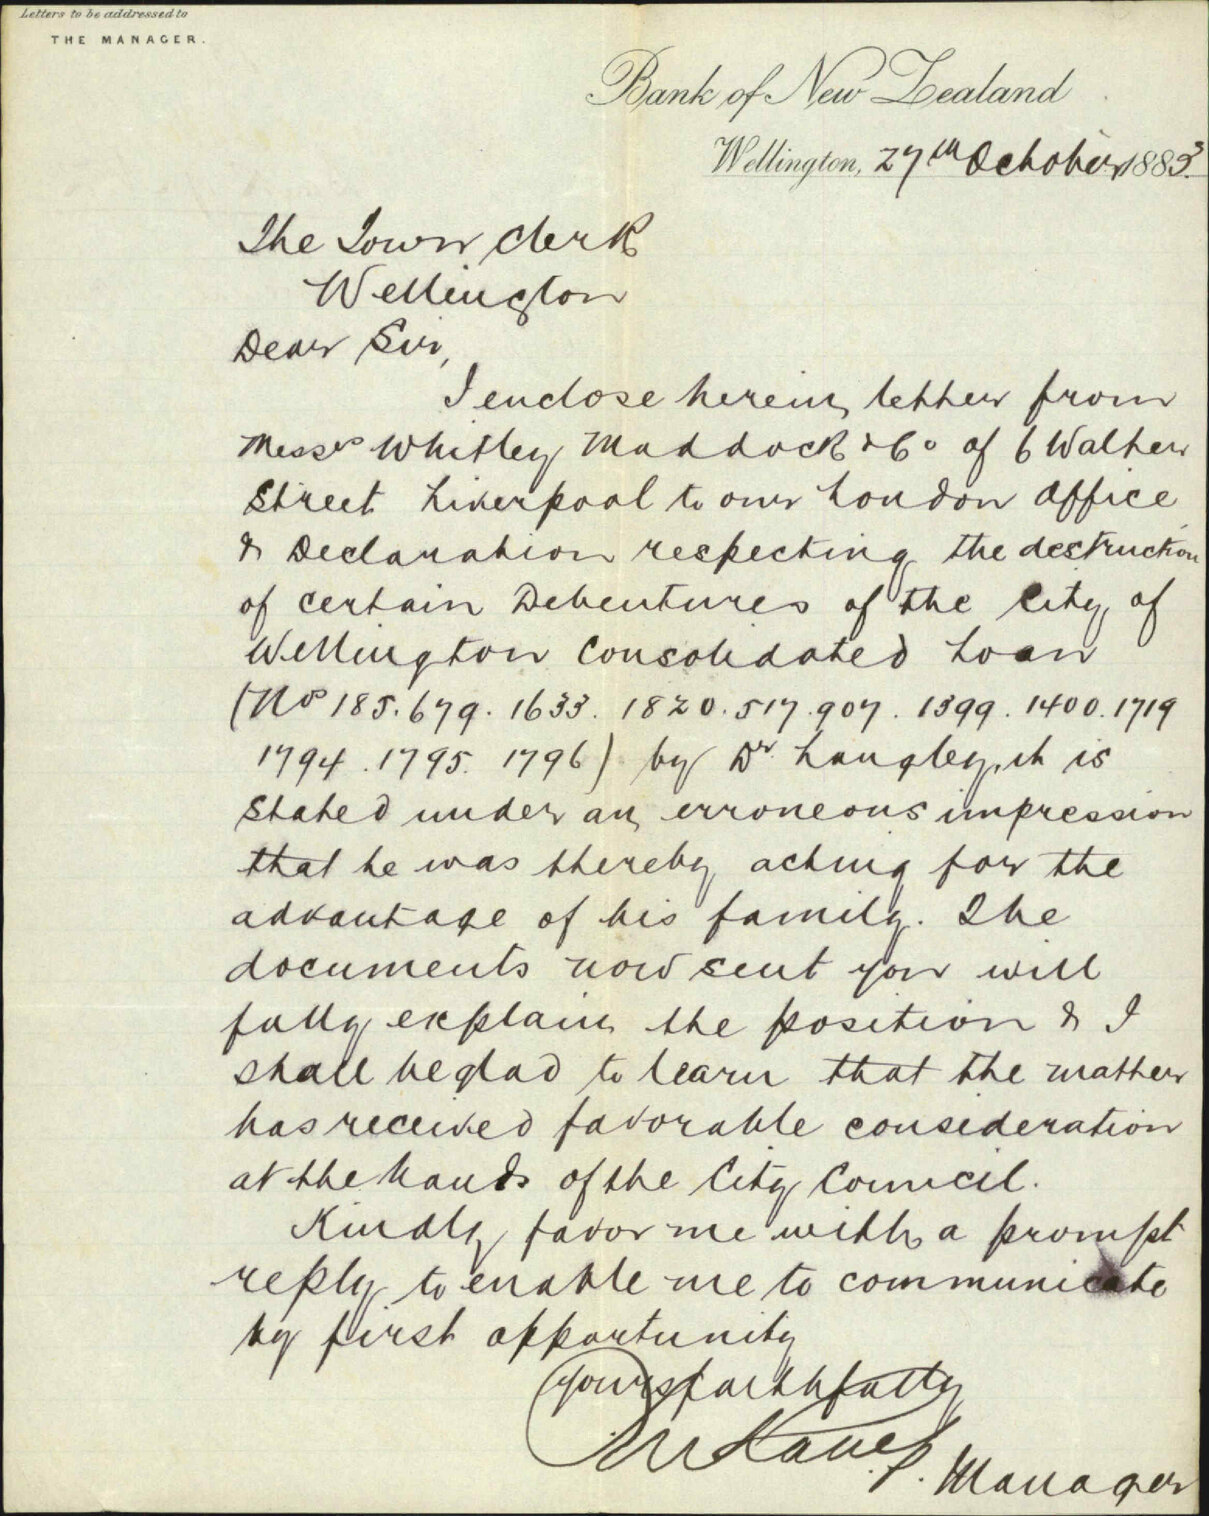 Letters to be addressed to
THE MANAGER.
Bank of New Zealand
Wellington, 27th October 1883.
The Town Clerk
Wellington
Dear Sir,
I enclose herein letter from
Messrs Whitley Maddock & Co of 6 Walter
Street Liverpool to our London Office
& Declaration respecting the destruction
of certain Debentures of the City of
Wellington Consolidated Loan
(Nos 185. 679. 1633. 1820. 517. 907. 1399. 1400. 1719
1794. 1795. 1796) by Dr. Langley, it is
stated under an erroneous impression
that he was thereby acting for the
advantage of his family. The
documents now sent you will
fully explain the position & I
shall be glad to learn that the matter
has received favorable consideration
at the hands of the City Council.
Kindly favor me with a prompt
reply to enable me to communicate
by first opportunity
Yours faithfully
P. Manager